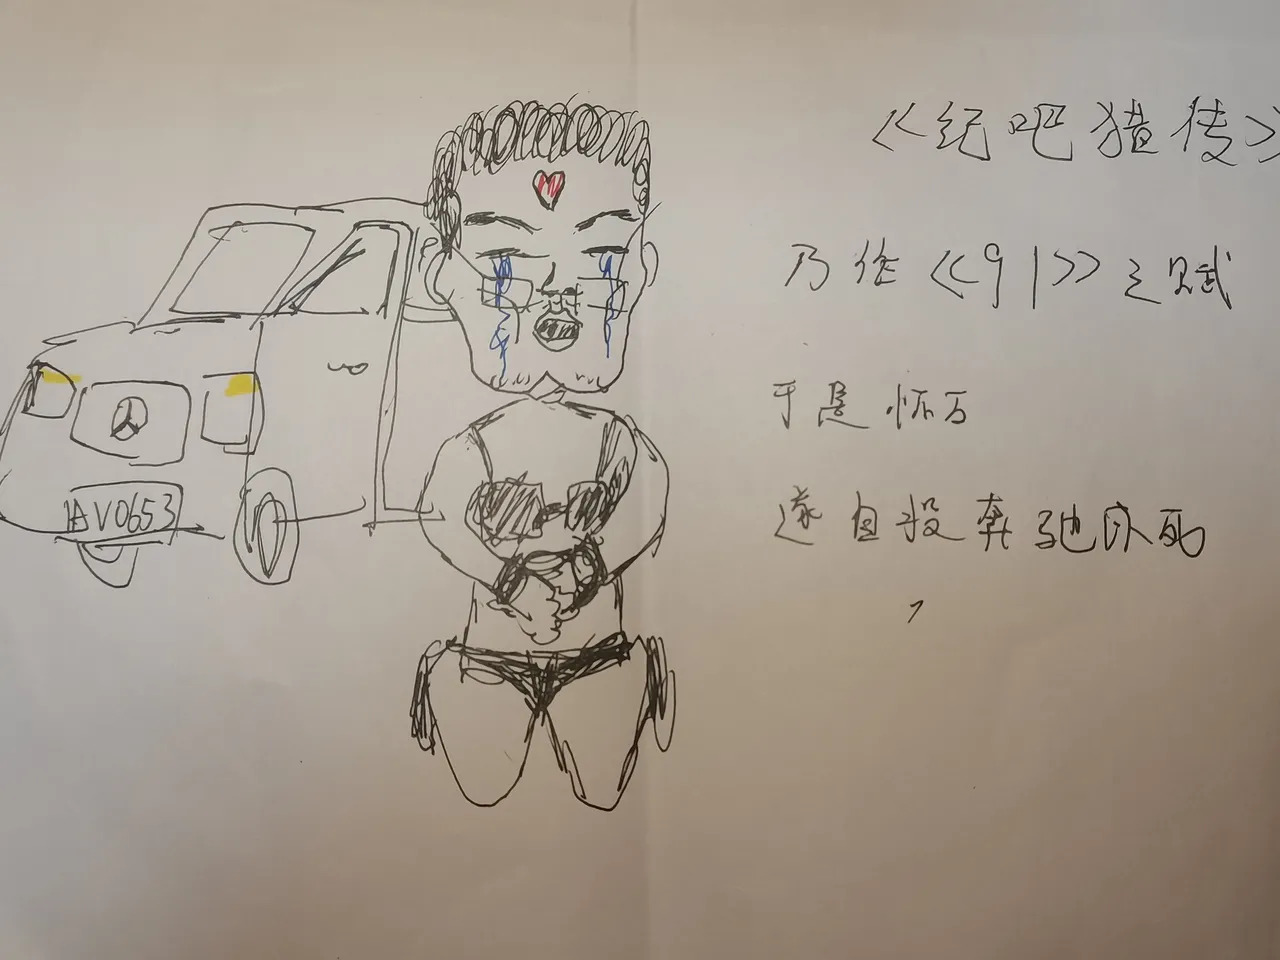 《纪吧猎传》
乃作《91》之赋
于是怀万
遂自投奔驰卧死
AV0653